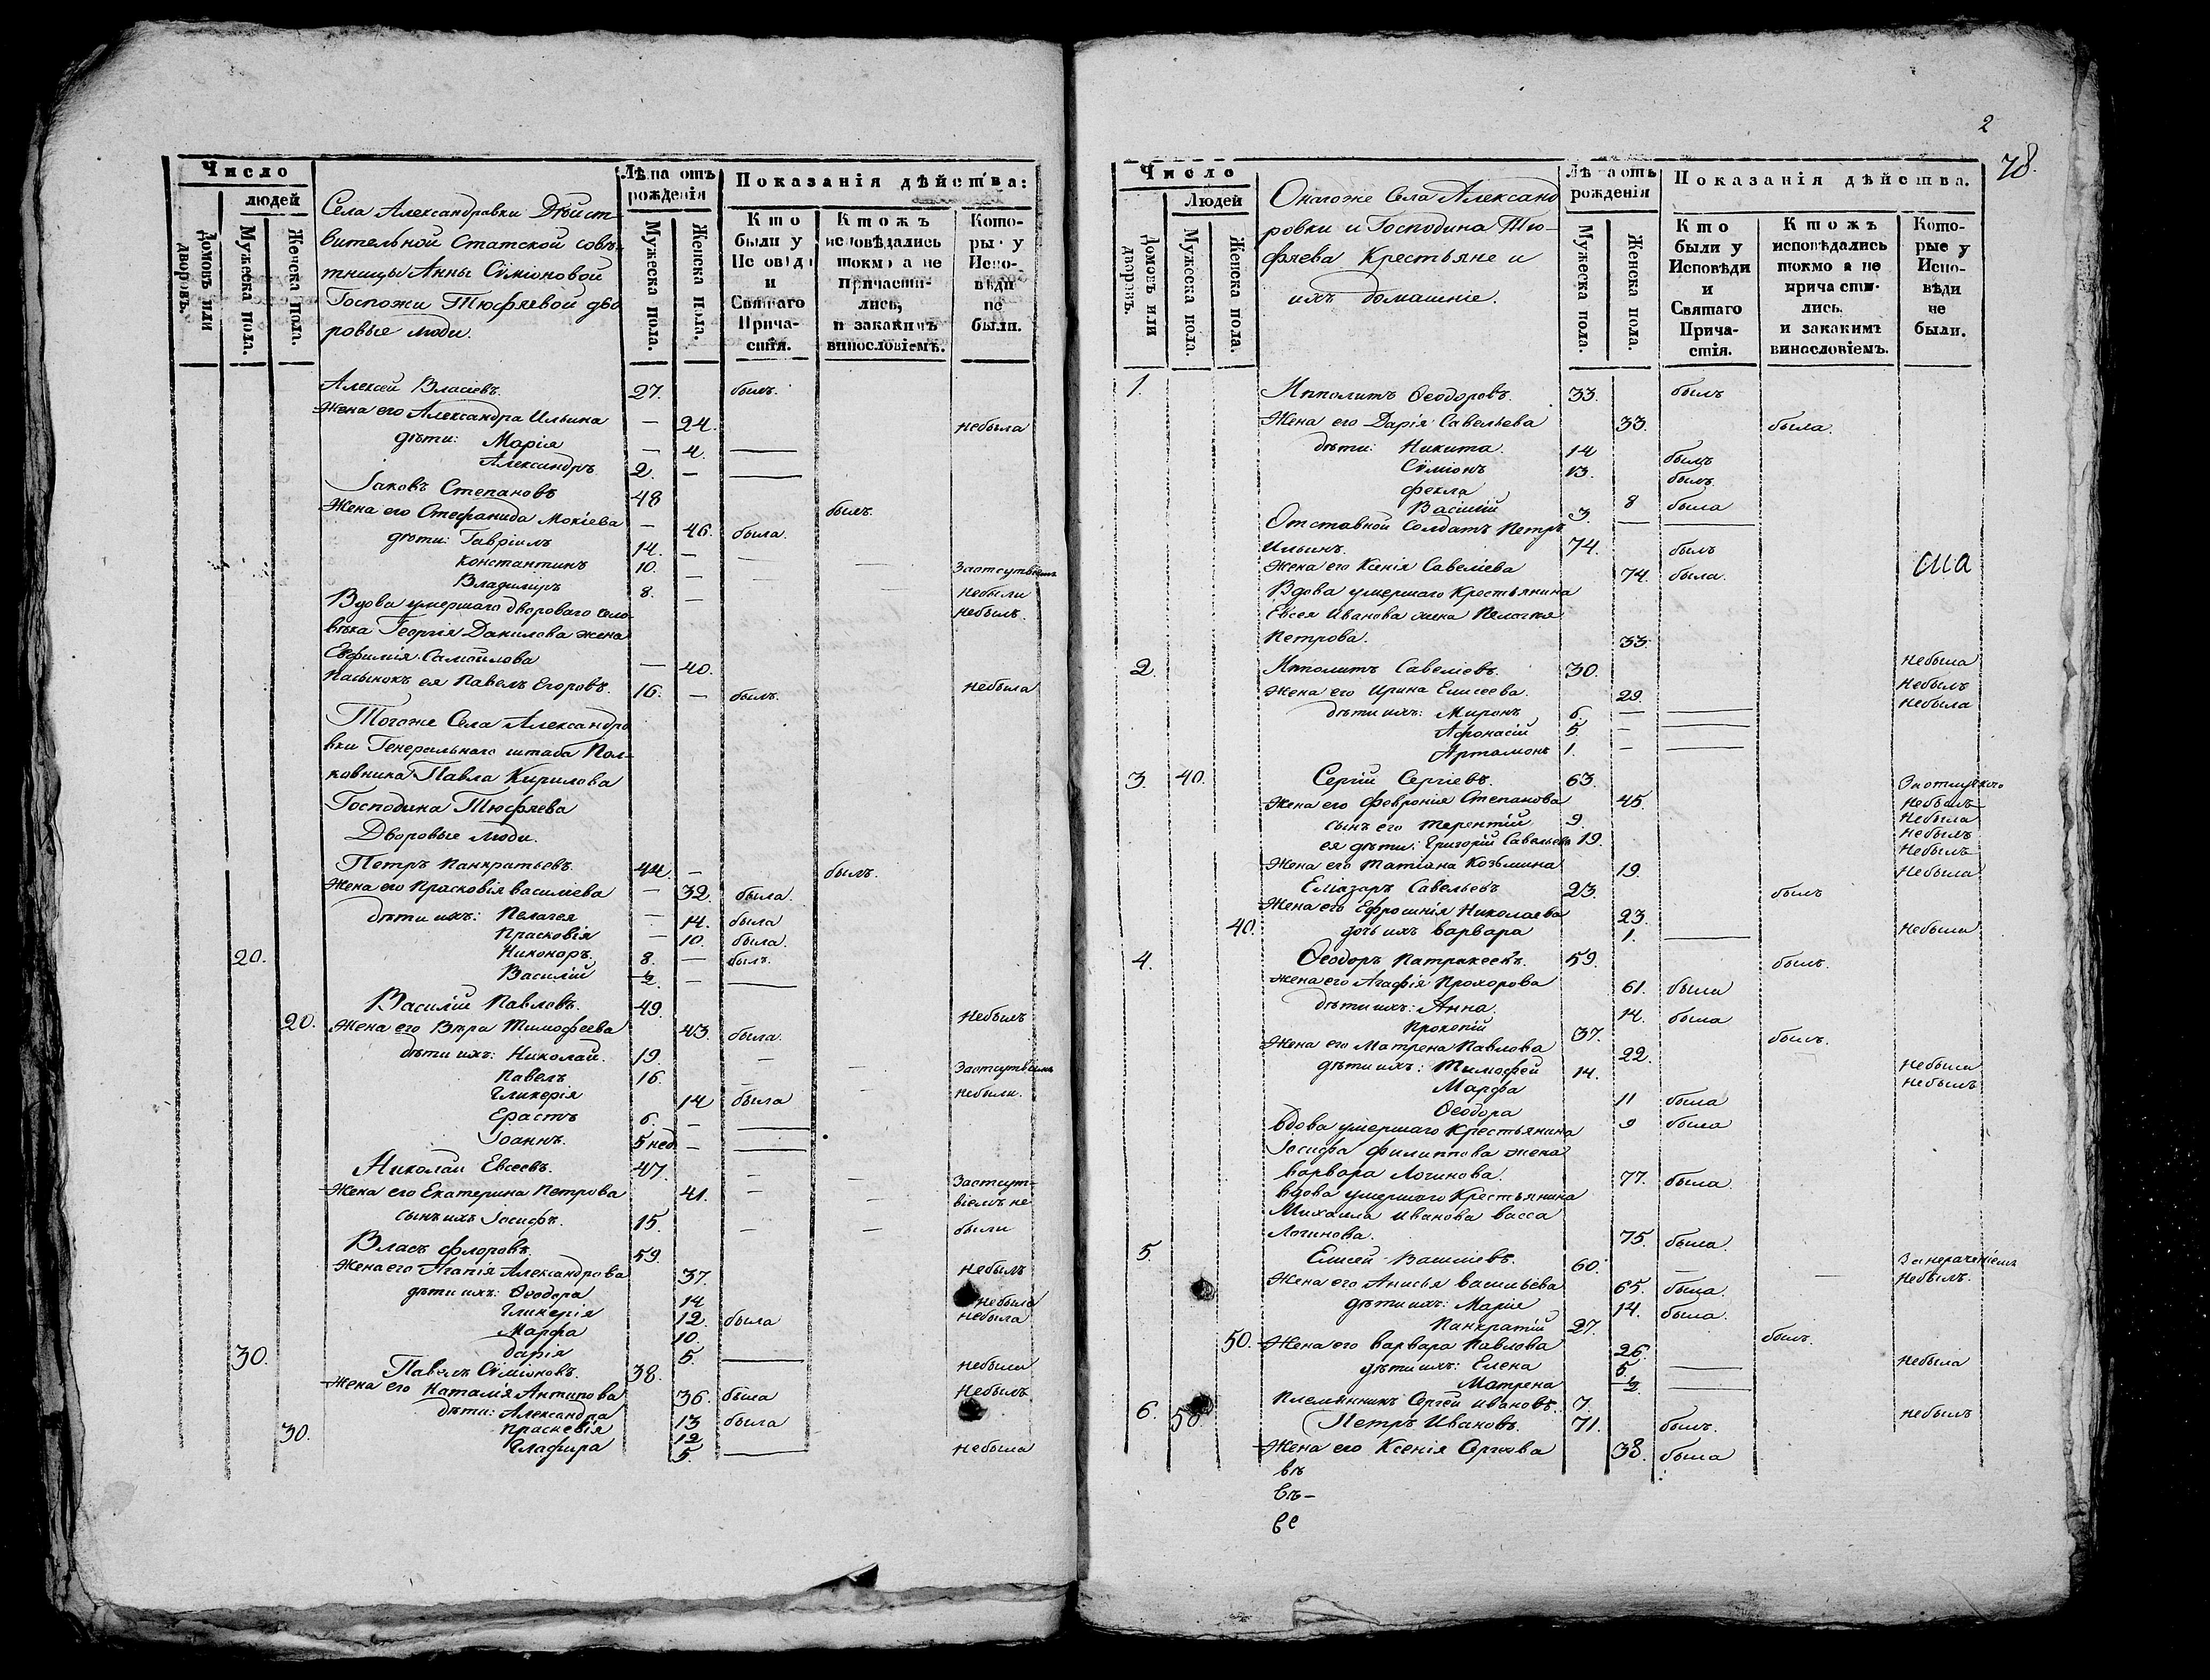 Число
людей
Домовъ или дворовъ.
Мужеска пола.
Женска пола.
Села Александровки Дѣйст-
вительной Статской совѣ-
тницы Анны Сѵмеоновой
Госпожи Тюфяевой дво
ровые люди.
Лѣта отъ рожденія
Мужеска пола.
Женска пола.
Показанія дѣйства:
Кто были у Исповѣди и Святаго Причастія.
Ктожъ исповѣдались токмо а не причастились, и закакимъ винословіемъ.
Которые у Исповѣди не были.
Алексей Власіевъ. 27. былъ.
Жена его Александра Ильина — 24. небыла
дѣти: Марія — 4. —
Александръ 2. — —
Іаковъ Степановъ 48 былъ.
Жена его Стефанида Мокіева — 46. была.
дѣти: Гавріилъ 14. — —
Константинъ 10. — Заотсутвіемъ
Владимиръ 8. — небыли
Вдова умершаго двороваго чело- небылъ.
вѣка Георгія Данилова жена
Евфимія Самойлова — 40. небыла
Пасынокъ ея Павелъ Егоровъ. 16. — былъ.
Тогоже Села Александро
вки Генеральнаго штаба Пол-
ковника Павла Кирилова
Господина Тюфяева
Дворовые люди.
Петръ Панкратьевъ. 44. — былъ.
Жена его Прасковія Василіева — 32. была.
дѣти ихъ: Пелагея — 14. была
Прасковія — 10. была.
20. Никоноръ. 8. — былъ.
Василій ½. — —
Василій Павловъ. 49. небылъ
20. Жена его Вѣра Тимофеева 43. была.
дѣти ихъ: Николай. 19. — —
Павелъ 16. — Заотсутвіемъ
Гликерія 14 была небыли.
Ерастъ 6. — —
Іоаннъ. 5 нед — —
Николай Евсеевъ. 47. — — Заотсут-
Жена его Екатерина Петрова 41. — віемъ не
сынъ ихъ Іосифъ. 15. — — были
Власъ Флоровъ. 59. небылъ
Жена его Агапія Александрова 37. небыла
дѣти ихъ: Ѳеодора 14 небыла
Гликерія 12. была
Марфа 10.
Дарія 5. —
30. Павелъ Сѵміоновъ. 38. небылъ
Жена его Наталія Антипова 36. была
дѣти: Александра 13 была
Прасковія 12
30. Глафира 5. — небыла
2
78.
Число
Людей
Домовъ или дворовъ.
Мужеска пола.
Женска пола.
Онагоже Села Александ
ровки и Господина Тю-
фяева Крестьяне и
ихъ домашніе.
Лѣта отъ рожденія
Мужеска пола.
Женска пола.
Показанія дѣйства.
Кто были у Исповѣди и Святаго Причастія.
Ктожъ исповѣдались токмо а не причастились. и закакимъ винословіемъ.
Которые у Исповѣди не были.
1. Ипполитъ Ѳеодоровъ. 33. былъ
Жена его Дарія Савельева 33. была.
дѣти: Никита 14 былъ
Сѵміонъ 13. былъ.
Фекла 8 была
Василій 3. — —
Отставной Солдатъ Петръ
Ильинъ. 74. былъ
Жена его Ксенія Савеліева 74. была.
Вдова умершаго Крестьянина
Евсея Иванова жена Пелагея
Петрова. 33. небыла
2. Ипполитъ Савеліевъ. 30. небылъ
Жена его Ирина Елисеева. 29. небыла
дѣти ихъ: Миронъ 6. — —
Афонасій 5 — —
Артамонъ 1. — —
3. 40. Сергій Сергіевъ. 63.
Жена его Феврония Степанова 45. небыла
сынъ его Терентій 9 небылъ
ея дѣти: Григорій Савельевъ 19. небылъ
Жена его Татіана Козьмина 19. небыла
Еліазаръ Савельевъ 23. былъ
Жена его Ефросинія Николаева 23. небыла
40. дочь ихъ Варвара 1. —
4. Ѳеодоръ Патрикеевъ. 59. былъ.
Жена его Агафія Прохорова 61. была
дѣти ихъ: Анна 14. была
Прокопій 37. былъ.
Жена его Матрена Павлова 22. небыла
дѣти ихъ: Тимофей 14. небылъ
Марфа 11 была
Ѳеодора 9 была
Вдова умершаго Крестьянина
Іосифа Филиппова жена
Варвара Логинова. 77. была
Вдова умершаго Крестьянина
Михаила Иванова Васса
Логинова. 75. была.
5. Елисей Василіевъ. 60. — — Занераченіемъ
Жена его Анисья Васильева 65. была. небылъ.
дѣти ихъ: Марія 14. была.
Панкратій 27. былъ.
50. Жена его Варвара Павлова 26. небыла
дѣти ихъ: Елена 5 —
Матрена ½. —
Племянникъ Сергей Ивановъ. 7. небылъ
6. 50. Петръ Ивановъ. 71. былъ.
Жена его Ксенія Сергеева 38. была